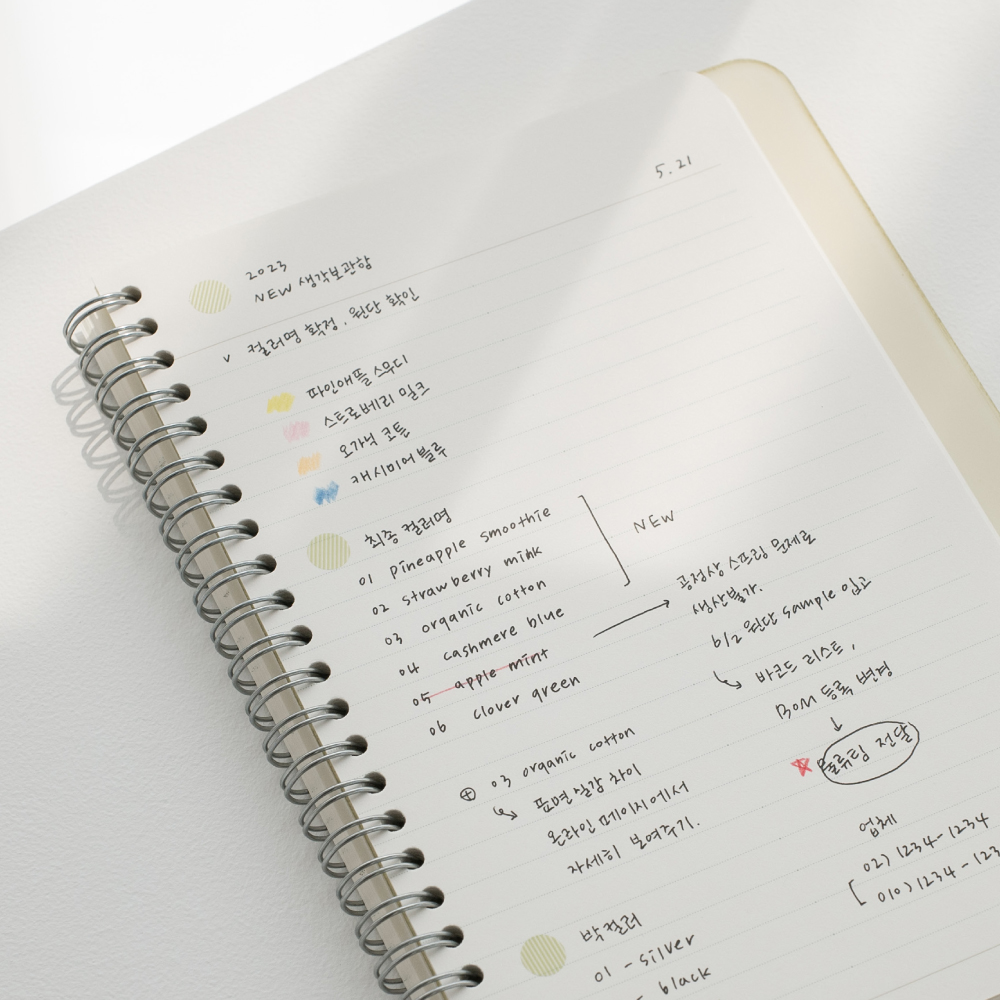 5. 21
2023
NEW 생각보관함
v 컬러명 확정, 원단 확인
파인애플 스무디
스트로베리 밀크
오가닉 코튼
캐시미어 블루
최종 컬러명
01 pineapple smoothie
02 strawberry milk
03 organic cotton
04 cashmere blue
05 apple mint
06 clover green
NEW
공정상 스프링 문제로
생산불가.
6/2 원단 sample 입고
바코드 리스트,
BOM 등록 변경
↓
전달
⊕ 03 organic cotton
표면 질감 차이
온라인 페이지에서
자세히 보여주기.
업체
02) 1234-1234
010) 1234 - 123
박컬러
01 - silver
- black